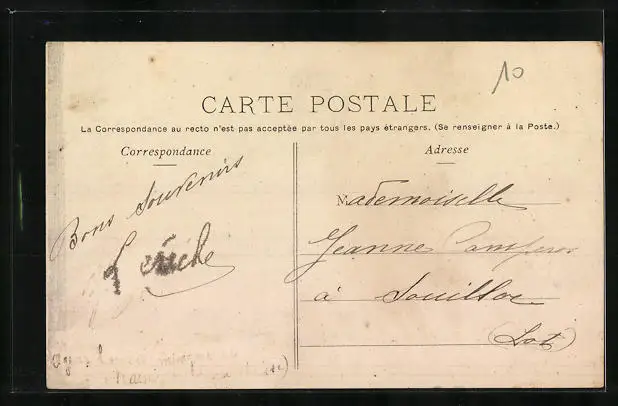 10
CARTE POSTALE
La Correspondance au recto n'est pas acceptée par tous les pays étrangers. (Se renseigner à la Poste.)
Correspondance
Adresse
Bons Souvenirs
Mademoiselle
Jeanne
à Souillac
(Lot)